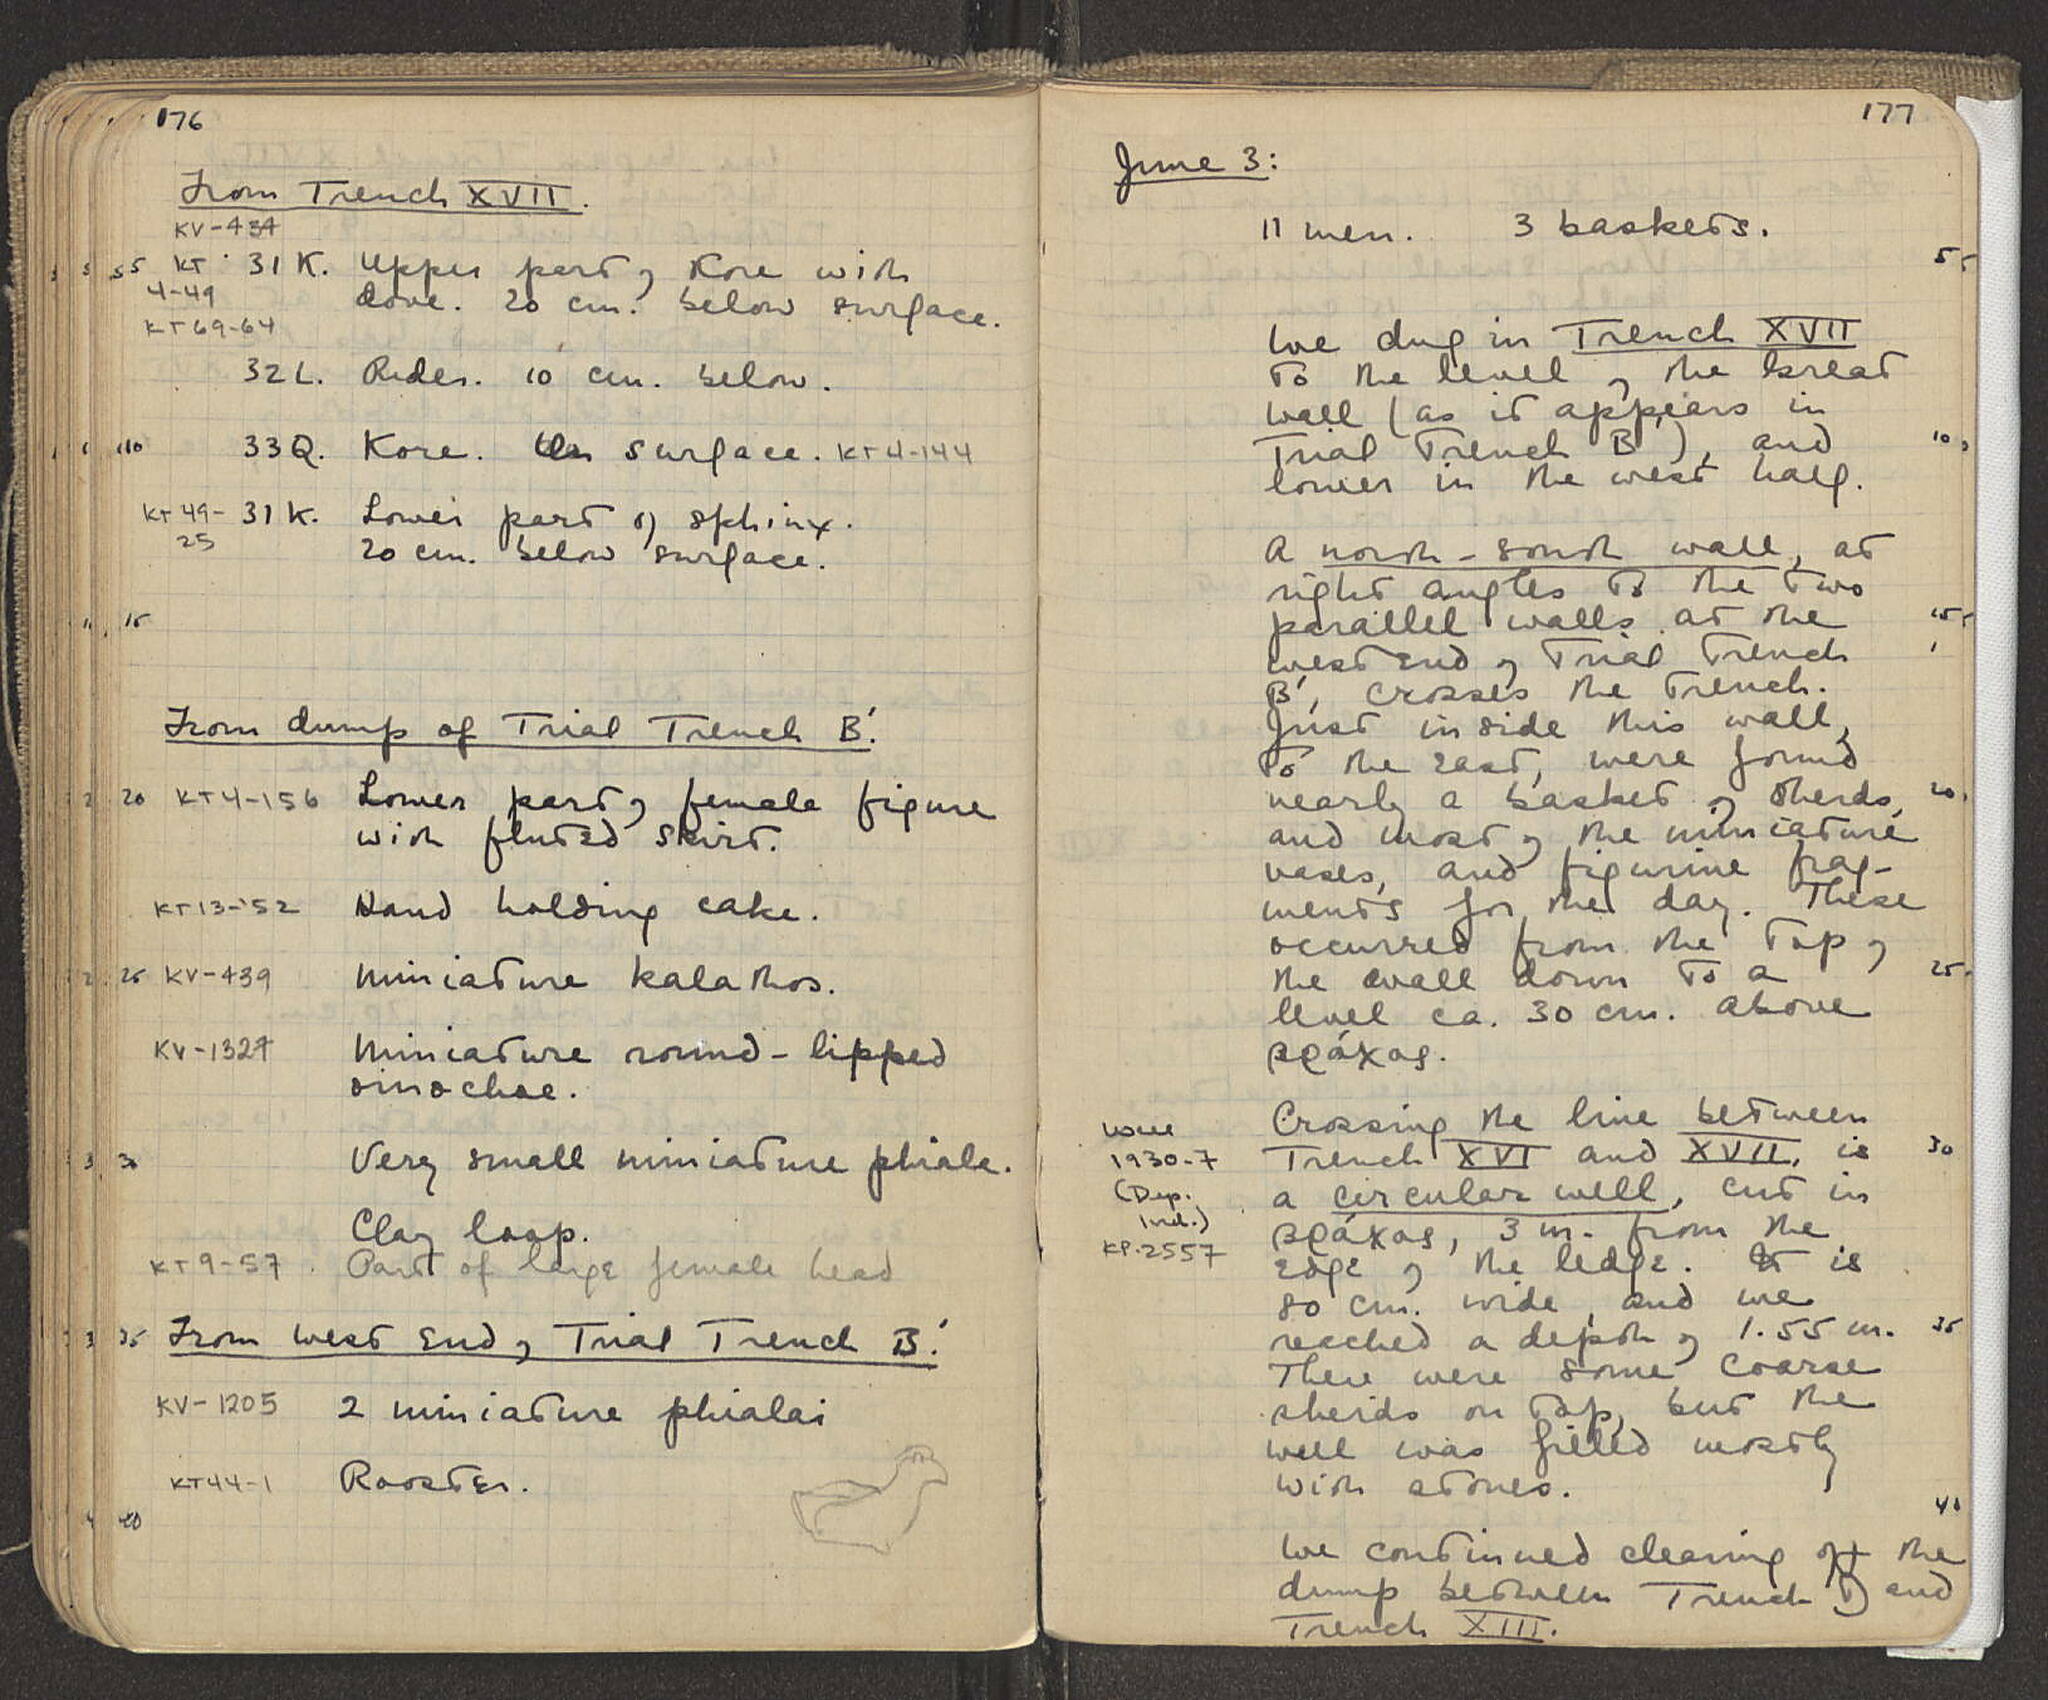 176
From Trench XVII.
KV-434
5 KT 31 K. Upper part of Kore with
4-49 dove. 20 cm. below surface.
KT69-64
32 L. Rider. 10 cm. below.
10 33Q. Kore. On surface. KT4-144
KT49- 31 K. Lower part of sphinx.
25 20 cm. below surface.
15
From dump of Trial Trench B'.
20 KT4-156 Lower part of female figure
with fluted skirt.
KT13-152 Hand holding cake.
25 KV-439 Miniature kalathos.
KV-1327 Miniature round-lipped
oinochoe.
30 Very small miniature phiale.
Clay loop.
KT9-57 Part of large female head
35 From west end of Trial Trench B'.
KV-1205 2 miniature phialai
KT44-1 Rooster.
40
177
June 3:
11 men. 3 baskets.
5
We dug in Trench XVII
to the level of the great
wall (as it appears in
Trial Trench B'), and 10
lower in the west half.
A north-south wall, at
right angles to the two
parallel walls at the 15
west end of Trial Trench
B', crosses the trench.
Just inside this wall,
to the east, were found
nearly a basket of sherds, 20
and most of the miniature
vases, and figurine frag-
ments for the day. These
occurred from the top of
the wall down to a 25
level ca. 30 cm. above
βράχος.
Crossing the line between
Well
1930-7 Trench XVI and XVII, is 30
(Dep. a circular well, cut in
Ind.) βράχος, 3 m. from the
KP.2557 edge of the ledge. It is
80 cm. wide, and we
reached a depth of 1.55 m. 35
There were some coarse
sherds on top, but the
well was filled mostly
with stones.
40
We continued clearing off the
dump between Trench D and
Trench XIII.